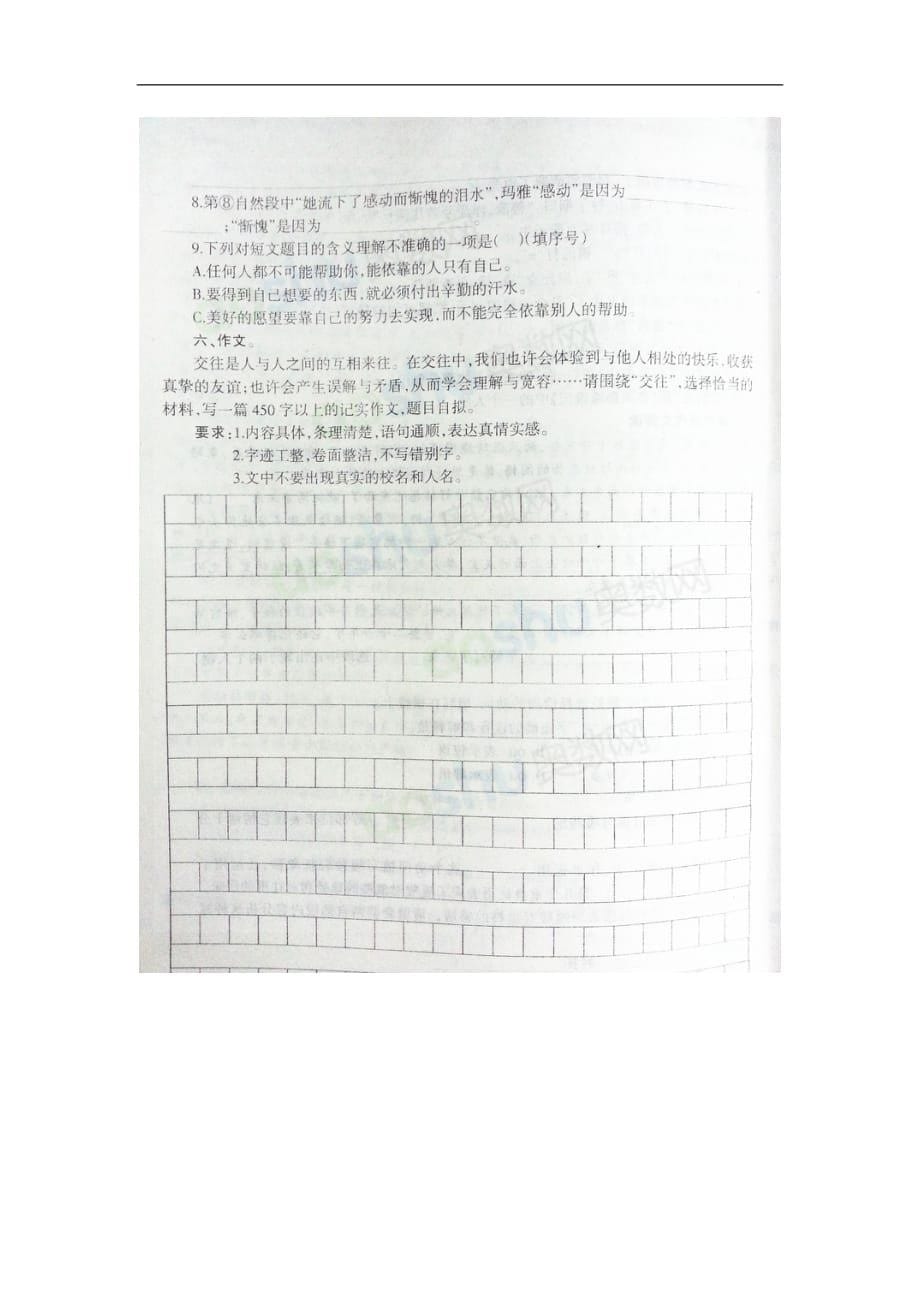 8.第⑧自然段中“她流下了感动而惭愧的泪水”,玛雅“感动”是因为
;“惭愧”是因为 。
9.下列对短文题目的含义理解不准确的一项是( )(填序号)
A.任何人都不可能帮助你,能依靠的人只有自己。
B.要得到自己想要的东西,就必须付出辛勤的汗水。
C.美好的愿望要靠自己的努力去实现,而不能完全依靠别人的帮助。
六、作文。
交往是人与人之间的互相来往。在交往中,我们也许会体验到与他人相处的快乐,收获
真挚的友谊;也许会产生误解与矛盾,从而学会理解与宽容……请围绕“交往”,选择恰当的
材料,写一篇 450 字以上的记实作文,题目自拟。
要求:1.内容具体,条理清楚,语句通顺,表达真情实感。
2.字迹工整,卷面整洁,不写错别字。
3.文中不要出现真实的校名和人名。
aoshu奥数网
aoshu奥数网
aoshu奥数网